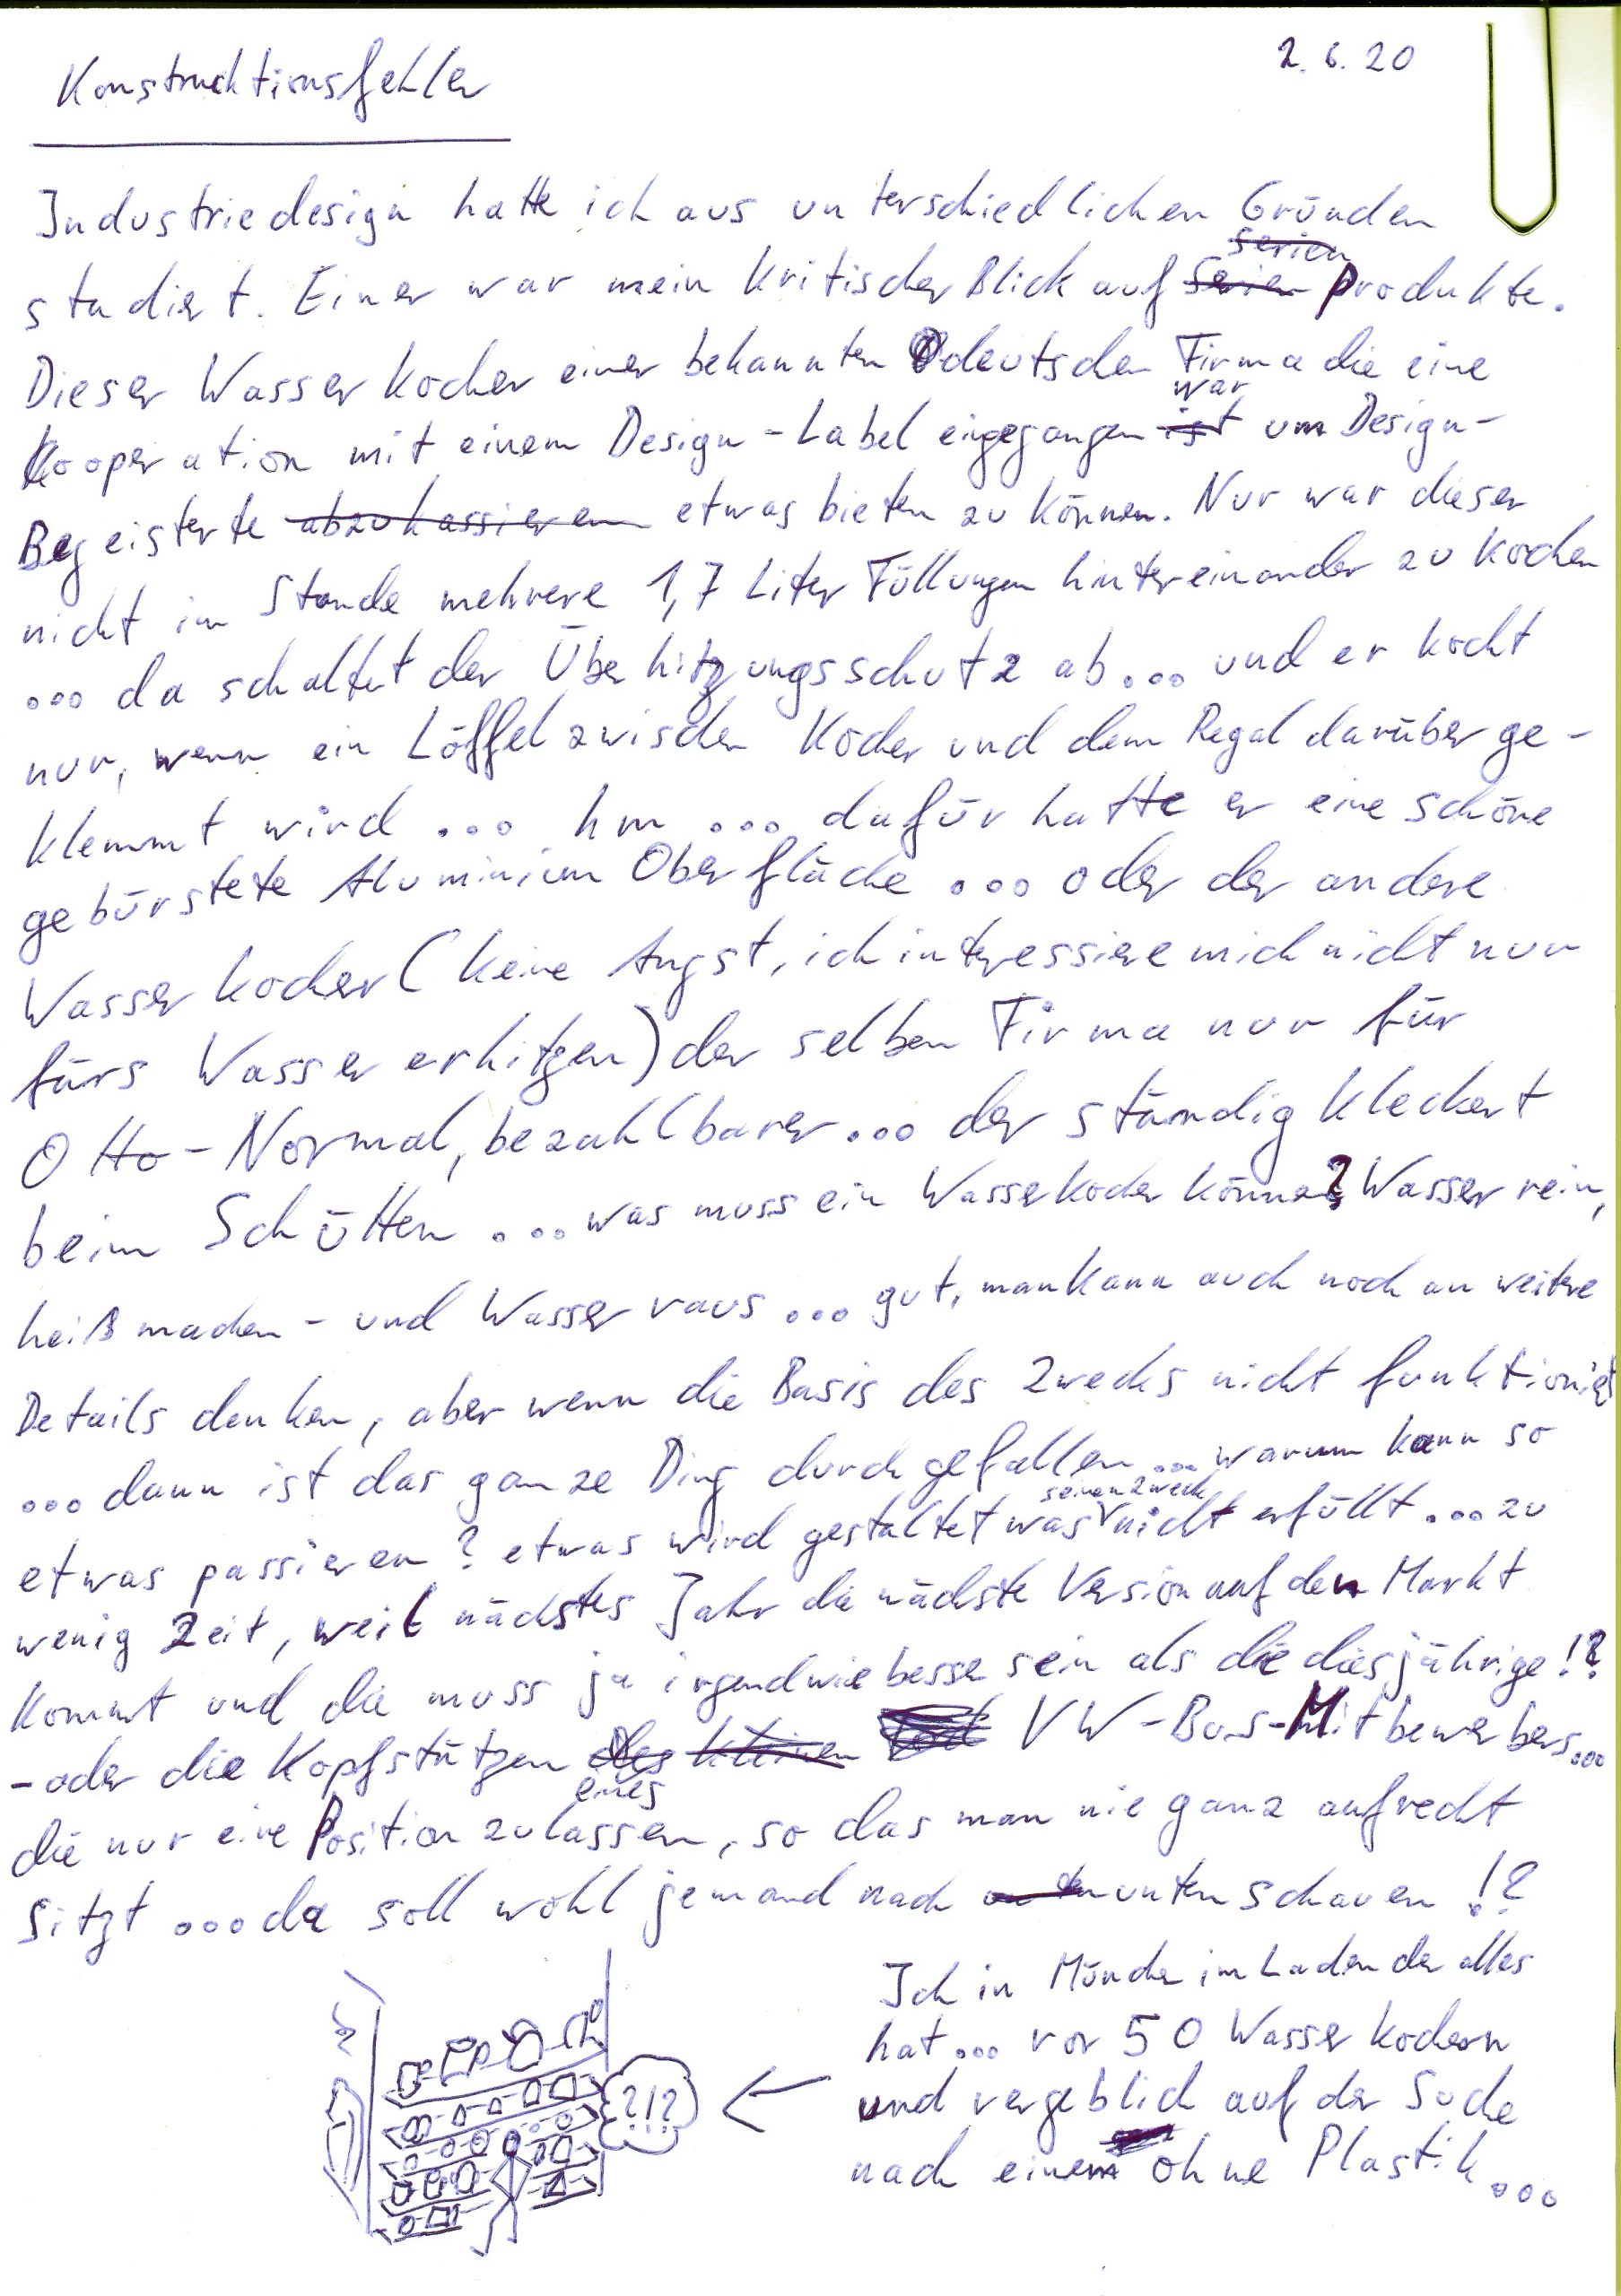 Konstruktionsfehler
2.6.20
Industriedesign hatte ich aus unterschiedlichen Gründen
serien
studiert. Einer war mein kritischer Blick auf serien Produkte.
Dieser Wasserkocher einer bekannten deutschen Firma die eine
war
Kooperation mit einem Design-Label eingegangen ist um Design-
Begeisterte abzukassieren etwas bieten zu können. Nur war dieser
nicht im Stande mehrere 1,7 Liter Füllungen hintereinander zu kochen
... da schaltet der Überhitzungsschutz ab... und er kocht
nur, wenn ein Löffel zwischen Kocher und dem Regal darüber ge-
klemmt wird ... hm ... dafür hatte er eine schöne
gebürstete Aluminium Oberfläche ... oder der andere
Wasserkocher (keine Angst, ich interessiere mich nicht nur
fürs Wasser erhitzen) der selben Firma nur für
Otto-Normal, bezahlbarer... der ständig kleckert
beim Schütten ... was muss ein Wasserkocher können? Wasser rein,
heiß machen - und Wasser raus ... gut, man kann auch noch an weitere
Details denken, aber wenn die Basis des Zwecks nicht funktioniert
... dann ist das ganze Ding durchgefallen ... warum kann so
seinen Zweck
etwas passieren? etwas wird gestaltet was nicht erfüllt ... zu
wenig Zeit, weil nächstes Jahr die nächste Version auf den Markt
kommt und die muss ja irgendwie besser sein als die diesjährige!?
- oder die Kopfstützen des kleinen VW-Bus-Mitbewerbers...
eines
die nur eine Position zulassen, so das man nie ganz aufrecht
sitzt ... da soll wohl jemand nach unten schauen!?
Ich in München im Laden der alles
hat ... vor 50 Wasserkochern
und vergeblich auf der Suche
nach einem ohne Plastik ...
?!?